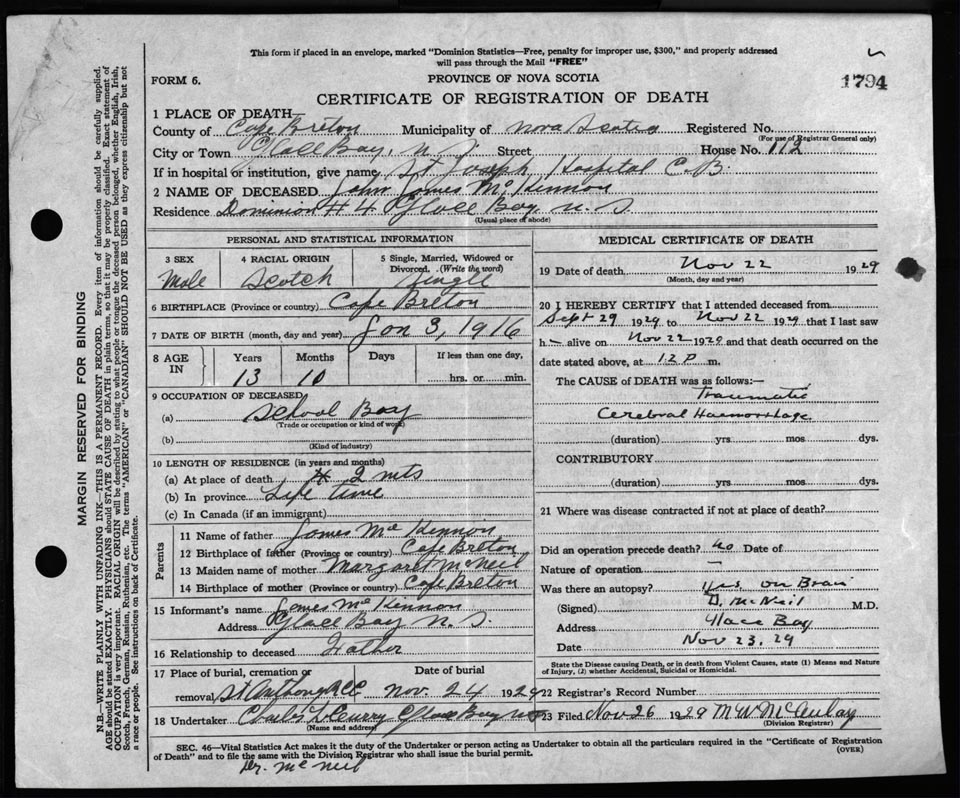 This form if placed in an envelope, marked "Dominion Statistics—Free, penalty for improper use, $300," and properly addressed
will pass through the Mail "FREE"
1794
FORM 6.
PROVINCE OF NOVA SCOTIA
CERTIFICATE OF REGISTRATION OF DEATH
1 PLACE OF DEATH
County of Cape Breton Municipality of Nova Scotia Registered No.
(For use of Registrar General only)
City or Town Glace Bay, N. S. Street House No. 112
If in hospital or institution, give name St Joseph Hospital C.B.
2 NAME OF DECEASED John James McKinnon
Residence Dominion # 4 Glace Bay N. S
(Usual place of abode)
PERSONAL AND STATISTICAL INFORMATION
3 SEX Male
4 RACIAL ORIGIN Scotch
5 Single, Married, Widowed or Divorced. (Write the word) Single
6 BIRTHPLACE (Province or country) Cape Breton
7 DATE OF BIRTH (month, day and year) Jan 3, 1916
8 AGE IN Years 13 Months 10 Days If less than one day, hrs. or min.
9 OCCUPATION OF DECEASED
(a) School Boy
(Trade or occupation or kind of work)
(b)
(Kind of industry)
10 LENGTH OF RESIDENCE (in years and months)
(a) At place of death 2 mts
(b) In province Life time
(c) In Canada (if an immigrant)
Parents
11 Name of father James McKinnon
12 Birthplace of father (Province or country) Cape Breton
13 Maiden name of mother Margaret McNeil
14 Birthplace of mother (Province or country) Cape Breton
15 Informant's name James McKinnon
Address Glace Bay N. S.
16 Relationship to deceased Father
17 Place of burial, cremation or removal St Anthony Date of burial Nov. 24 1929
18 Undertaker Charles Curry Glace Bay NS
(Name and address)
MEDICAL CERTIFICATE OF DEATH
19 Date of death Nov 22 1929
(Month, day and year)
20 I HEREBY CERTIFY that I attended deceased from
Sept 29 1929 to Nov 22 1929 that I last saw
h— alive on Nov 22 1929 and that death occurred on the
date stated above, at 12 P m.
The CAUSE OF DEATH was as follows:—
Traumatic
Cerebral Haemorrhage
(duration) yrs mos dys.
CONTRIBUTORY
(duration) yrs. mos. dys.
21 Where was disease contracted if not at place of death?
Did an operation precede death? no Date of
Nature of operation —
Was there an autopsy? Yes, on Brain
(Signed) D. McNeil M.D.
Address Glace Bay
Date Nov 23, 29
State the Disease causing Death, or in death from Violent Causes, state (1) Means and Nature
of Injury, (2) whether Accidental, Suicidal or Homicidal.
22 Registrar's Record Number
23 Filed Nov 26 1929 M W McAulay
(Division Registrar)
SEC. 46—Vital Statistics Act makes it the duty of the Undertaker or person acting as Undertaker to obtain all the particulars required in the "Certificate of Registration
of Death" and to file the same with the Division Registrar who shall issue the burial permit.
(OVER)
Dr. McNeil
MARGIN RESERVED FOR BINDING
N.B.—WRITE PLAINLY WITH UNFADING INK—THIS IS A PERMANENT RECORD. Every item of information should be carefully supplied.
AGE should be stated EXACTLY. PHYSICIANS should STATE CAUSE OF DEATH in plain terms, so that it may be properly classified. Exact statement of
OCCUPATION is very important. RACIAL ORIGIN will be described by stating to what people or tongue the deceased person belonged, whether English, Irish,
Scotch, French, German, Russian, Ruthenian, etc. The terms "AMERICAN" or "CANADIAN" SHOULD NOT BE USED as they express citizenship but not
a race or people. See instructions on back of Certificate.